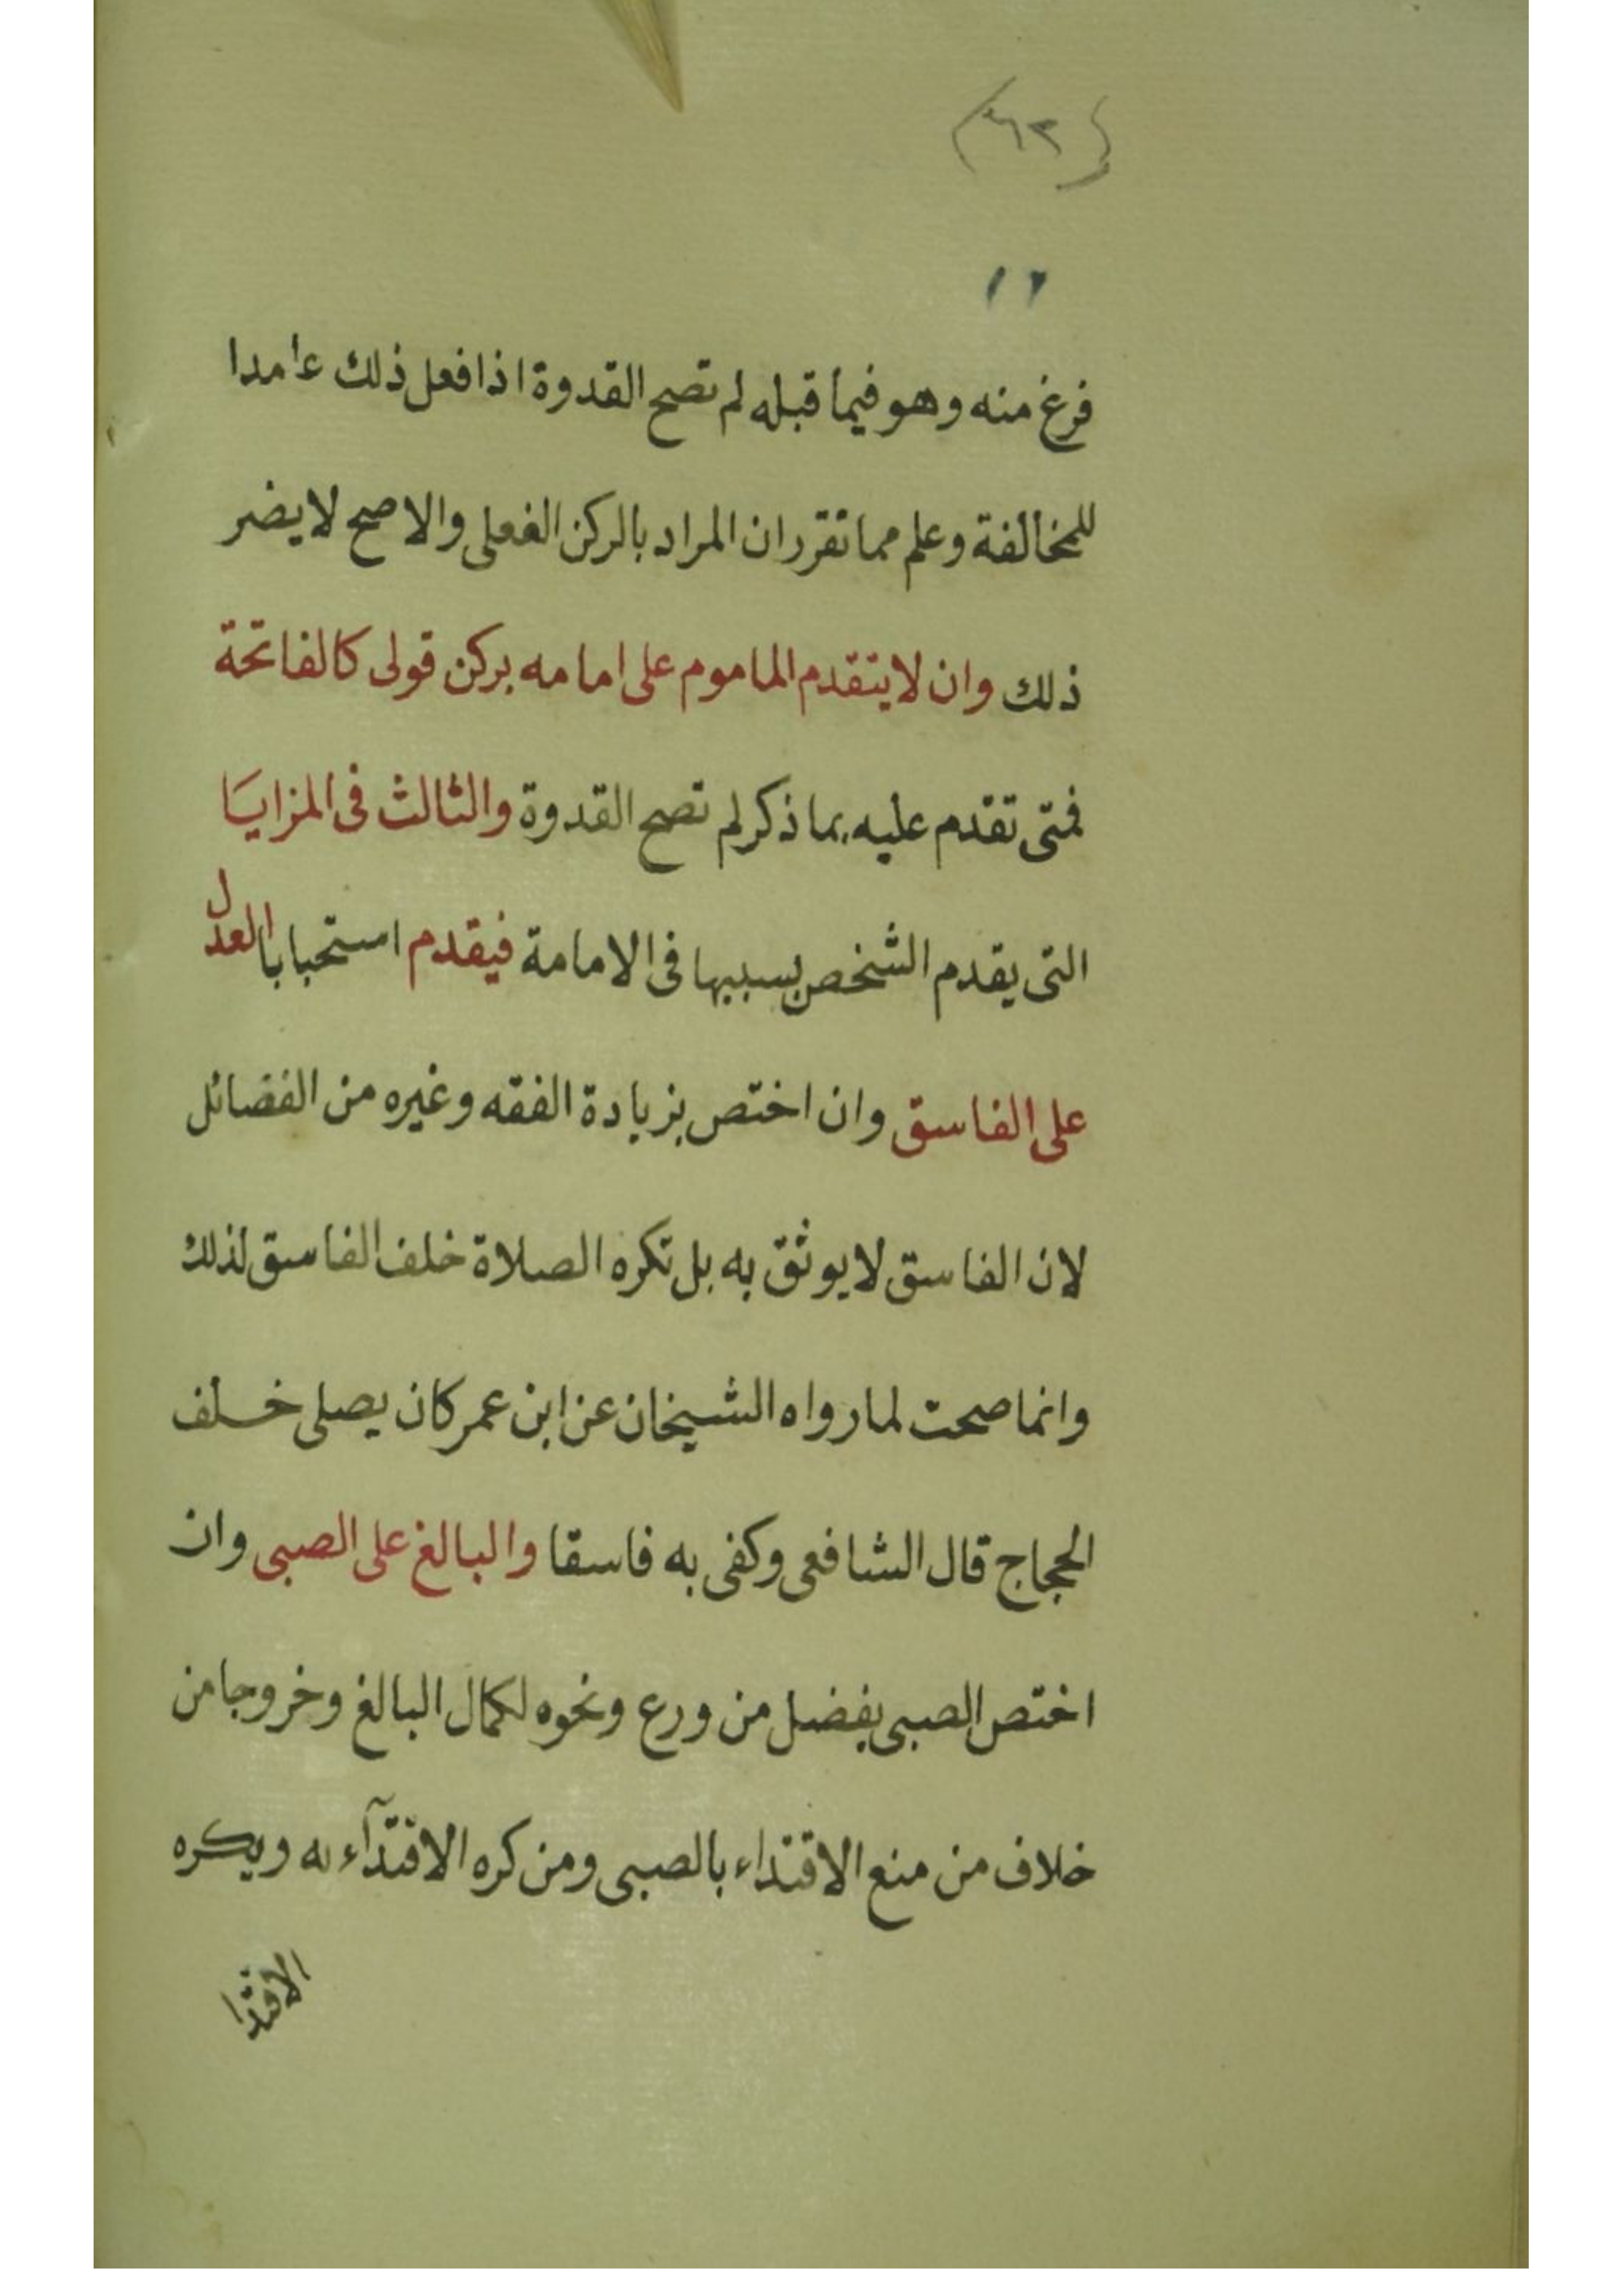 (٦٢)
١٢
فرغ منه وهو فيما قبله لم تصح القدوة اذا فعل ذلك عامدا
للمخالفة وعلم مما تقرر ان المراد بالركن الفعلى والاصح لا يضر
ذلك وان لا يتقدم الماموم على امامه بركن قولى كالفاتحة
فمتى تقدم عليه بما ذكر لم تصح القدوة والثالث فى المزايَا
التى يقدم الشخص بسببها فى الامامة فيقدم استحبابا العدل
على الفاسق وان اختص بزيادة الفقه وغيره من الفضائل
لان الفاسق لا يوثق به بل تكره الصلاة خلف الفاسق لذلك
وانما صحت لما رواه الشيخان عن ابن عمر كان يصلى خلف
الحجاج قال الشافعى وكفى به فاسقا والبالغ على الصبى وان
اختص الصبى بفضل من ورع ونحوه لكمال البالغ وخروجا من
خلاف من منع الاقتداء بالصبى ومن كره الاقتدآء به ويكره
الاقتدا